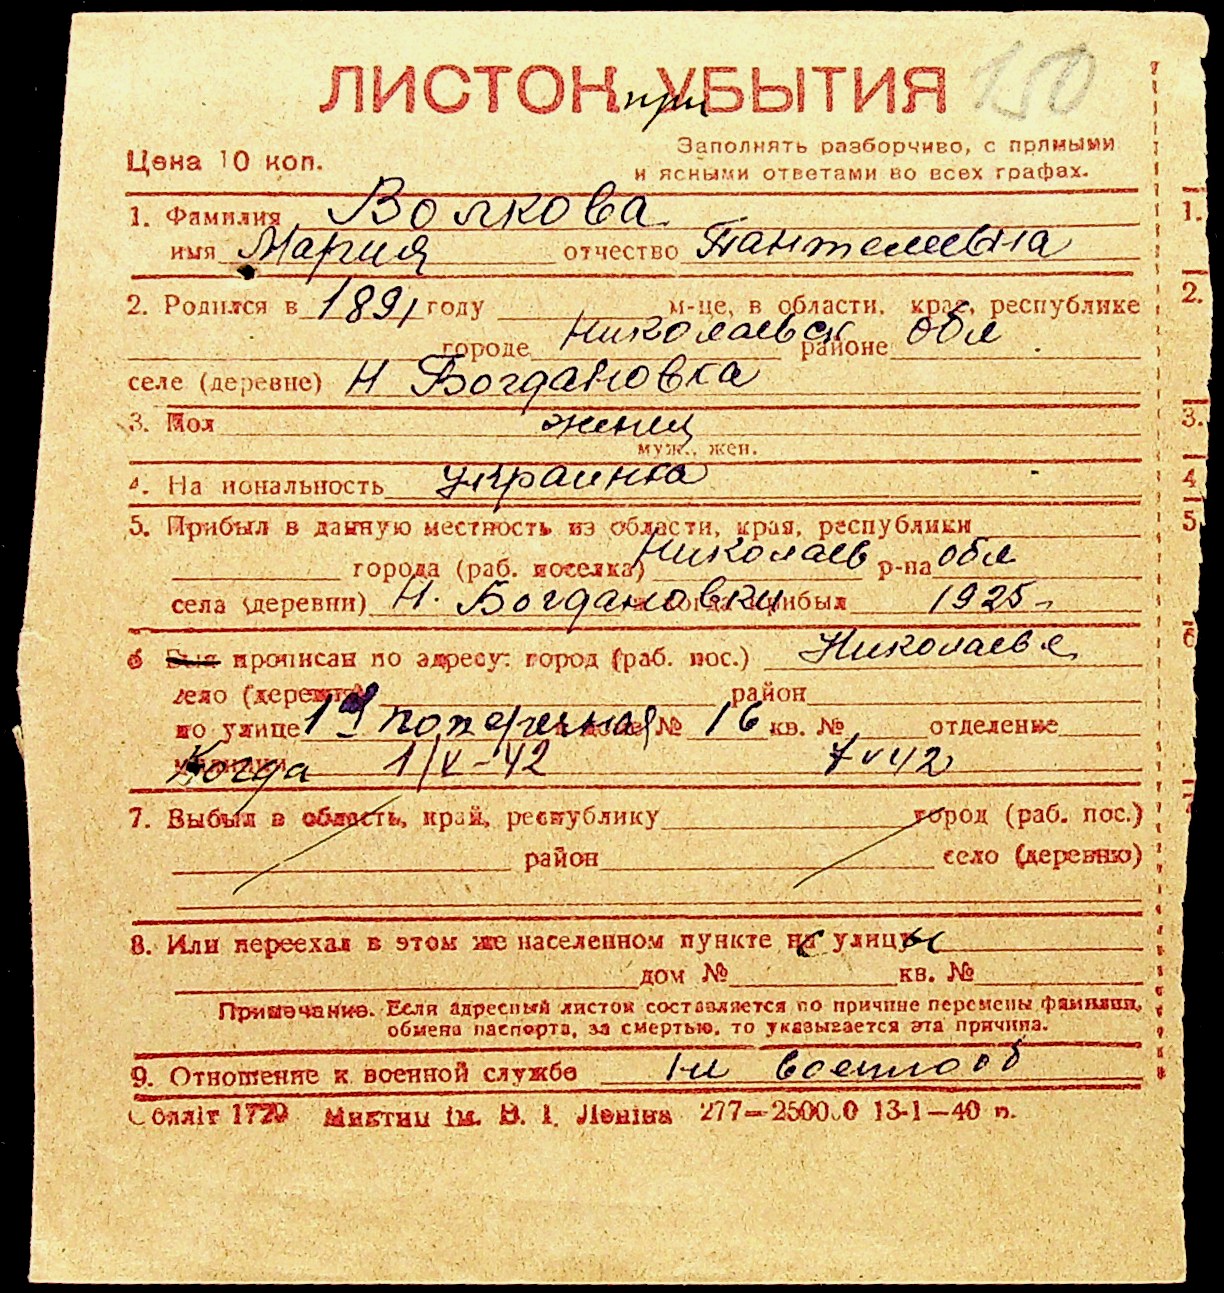 ЛИСТОК при УБЫТИЯ 150
Цена 10 коп.
Заполнять разборчиво, с прямыми
и ясными ответами во всех графах.
1. Фамилия Волкова 1.
имя Мария отчество Пантелеевна
2. Родился в 1891 году м-це, в области, крае, республике 2.
городе Николаевск районе обл
селе (деревне) Н Богдановка
3. Пол женщ 3.
муж., жен.
4. На иональность украинка 4
5. Прибыл в данную местность из области, края, республики 5
города (раб. поселка) Николаев р-на обл
села (деревни) Н. Богдановки и когда прибыл 1925
6 Был прописан по адресу: город (раб. пос.) Николаеве 6
село (деревня) район
по улице 1я поперечная в доме № 16 кв. № отделение
милиции Когда 1/V-42 7 V 42
7. Выбыл в область, край, республику город (раб. пос.) 7
район село (деревню)
8. Или переехал в этом же населенном пункте с улицы
дом № кв. №
Примечание. Если адресный листок составляется по причине перемены фамилии,
обмена паспорта, за смертью, то указывается эта причина.
9. Отношение к военной службе не военнооб
Облліт 1720 Миктип ім. В. І. Леніна 277—250000 13-1—40 п.